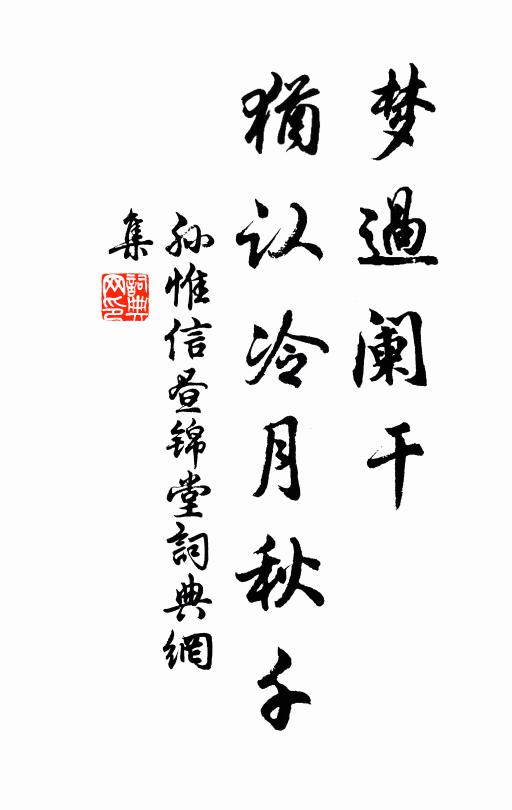 梦過阑干
猶认冷月秋千
孙惟信昼锦堂詞典網
集
詞典
网印